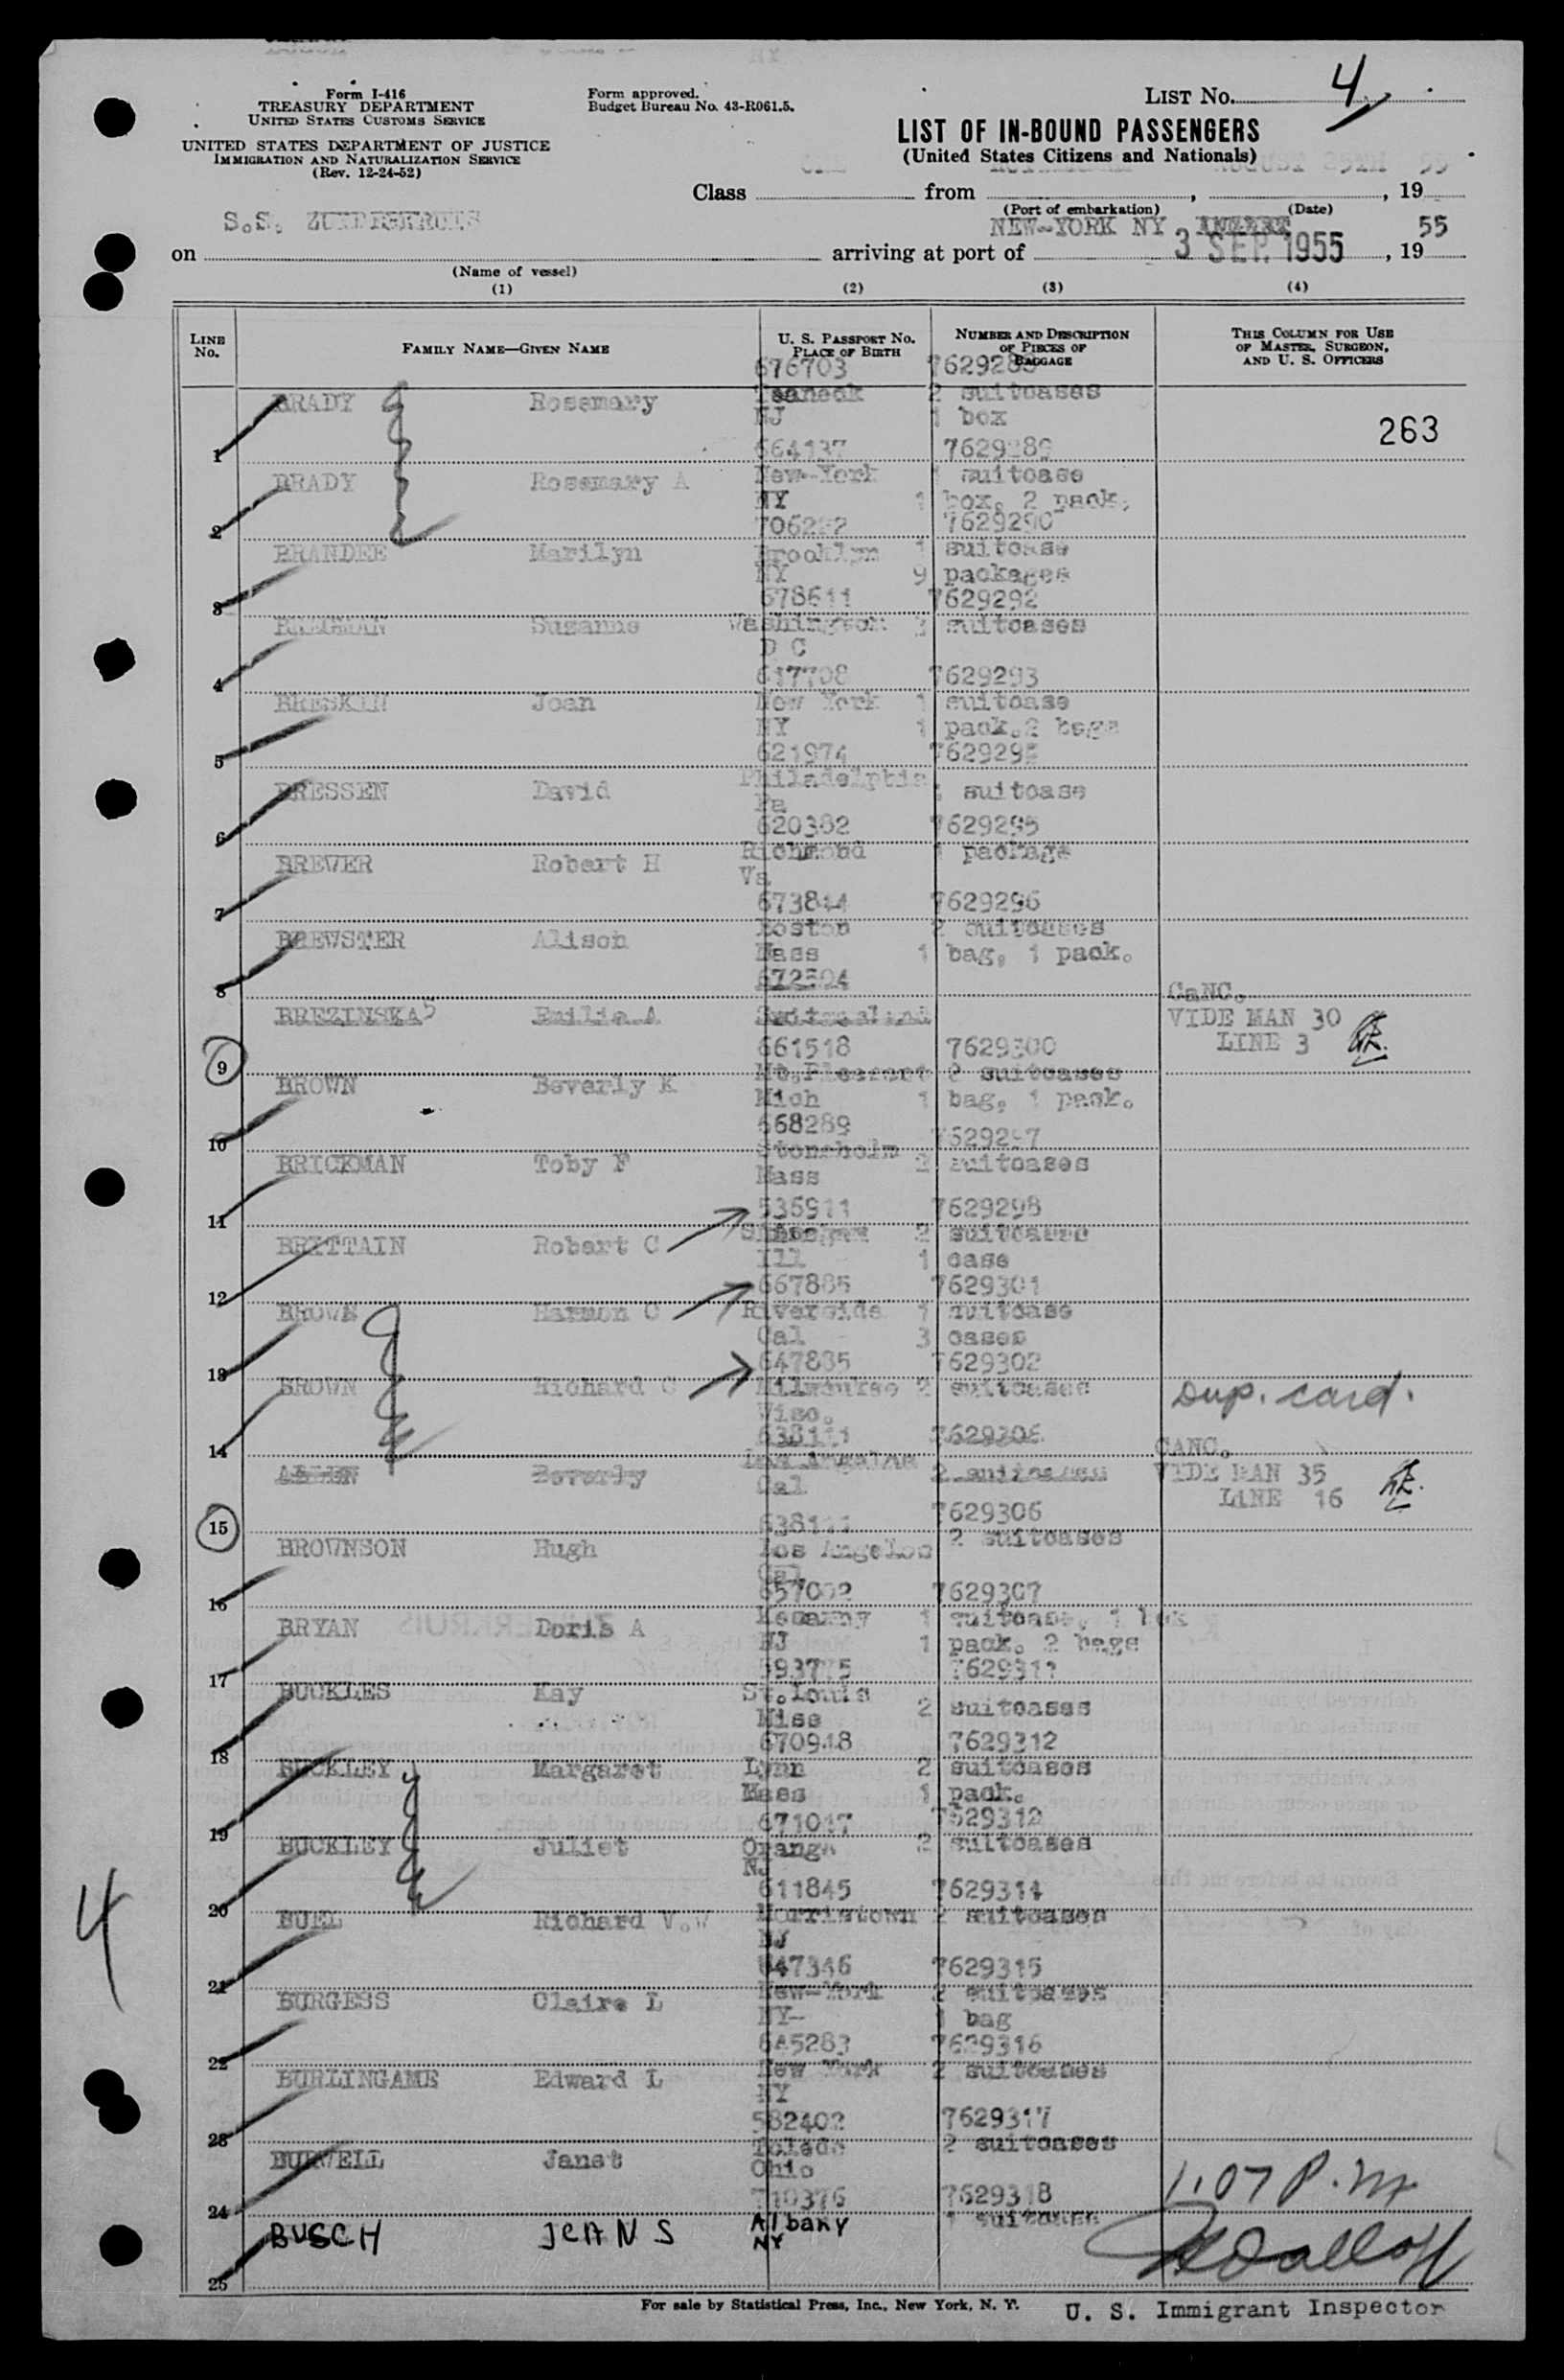 Form I-416
TREASURY DEPARTMENT
UNITED STATES CUSTOMS SERVICE
UNITED STATES DEPARTMENT OF JUSTICE
IMMIGRATION AND NATURALIZATION SERVICE
(Rev. 12-24-52)
Form approved.
Budget Bureau No. 43-R061.5.
LIST NO. 4
LIST OF IN-BOUND PASSENGERS
(United States Citizens and Nationals)
Class from , , 19 55
(Port of embarkation) (Date)
S.S. ZUIDERKRUIS NEW-YORK NY 55
on arriving at port of 3 SEP. 1955, 19
(Name of vessel)
(1) (2) (3) (4)
LINE No. FAMILY NAME—GIVEN NAME U. S. PASSPORT NO. PLACE OF BIRTH NUMBER AND DESCRIPTION OF PIECES OF BAGGAGE THIS COLUMN FOR USE OF MASTER, SURGEON, AND U. S. OFFICERS
676703
BRADY Rosemary Teaneck 2 suitcases
NJ 1 box
263
1 664137 7629289
BRADY Rosemary A New-York 1 suitcase
NY 1 box, 2 pack.
2 7629290
BRANDEE Marilyn Brooklyn 1 suitcase
NY 9 packages
3 678611 7629292
Suzanne Washington suitcases
D C
4 617708 7629293
BRESKIN Joan New York 1 suitcase
NY 1 pack.2 bags
5 621974
BRESSEN David Philadelphia 1 suitcase
Pa
6 620382 7629295
BREWER Robert H Richmond 1 package
Va
7 673844 7629296
BREWSTER Alison Boston 2 suitcases
Mass 1 bag, 1 pack.
8 672504
CANC.
BREZINSKA Emilia A Switzerland VIDE MAN 30
LINE 3
9 661518 7629300
BROWN Beverly K Mt.Pleasant 2 suitcases
Mich 1 bag, 1 pack.
10 668289 7629297
BRICKMAN Toby F Stoneholm 2 suitcases
Mass
11 535911 7629298
BRITTAIN Robert C 2 suitcases
Ill 1 case
12 667885 7629301
BROWN Harmon C Riverside 1 suitcase
Cal 3 cases
13 647835 7629302
BROWN Richard C Milwaukee 2 suitcases Dup. card.
Wisc.
14 638111 7629306
CANC.
ALLEN Beverly Los Angeles 2 suitcases VIDE MAN 35
Cal LINE 16
15 638111 7629306
BROWNSON Hugh Los Angeles 2 suitcases
Cal
16 7629307
BRYAN Doris A Kearny 1 suitcase,
NJ 1 pack. 2 bags
17 593775
BUCKLES Kay St.Louis 2 suitcases
Miss
18 670948 7629312
BUCKLEY Margaret Lynn 2 suitcases
Mass 1 pack.
19 671017
BUCKLEY Juliet Orange 2 suitcases
NJ
20 611845 7629314
BUEL Richard V.W Morristown 2 suitcases
NJ
21 647346 7629315
BURGESS Claire L New-York 2 suitcases
NY- 1 bag
22 645283 7629316
BURLINGAME Edward L New York 2 suitcases
NY
23 582402 7629317
BURWELL Janet Toledo 2 suitcases
Ohio
24 710376 7629318
1.07 P.M
BUSCH JEAN S Albany 1 suitcase
NY
25
4
For sale by Statistical Press, Inc., New York, N. Y.
U. S. Immigrant Inspector